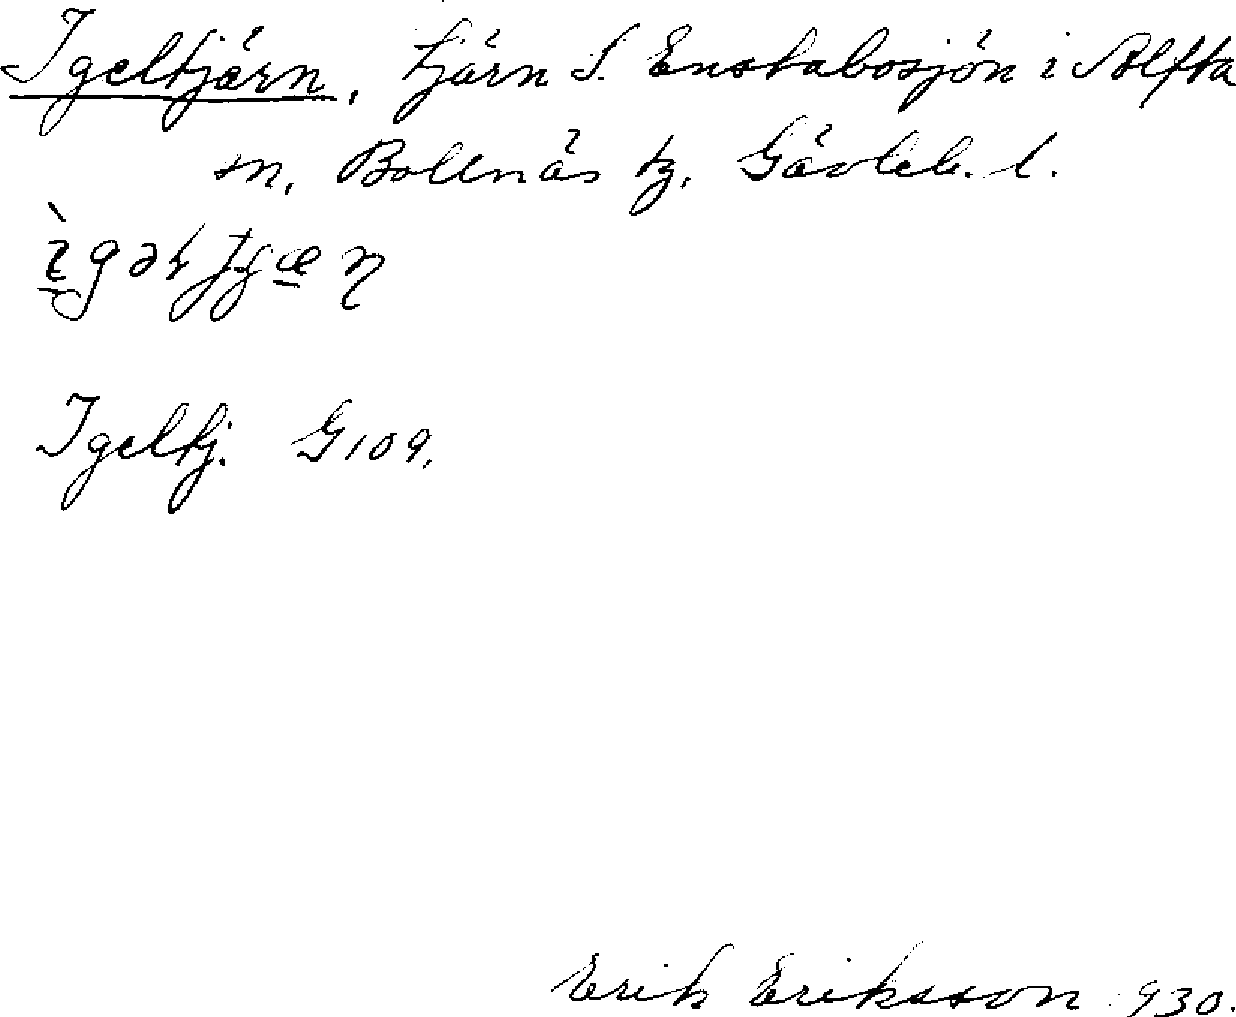 Igeltjärn, tjärn S. Enstabosjön i Alfta
sn, Bollnäs tg, Gävleb. l.
Igeltj. G 109.
Erik Eriksson 1930.